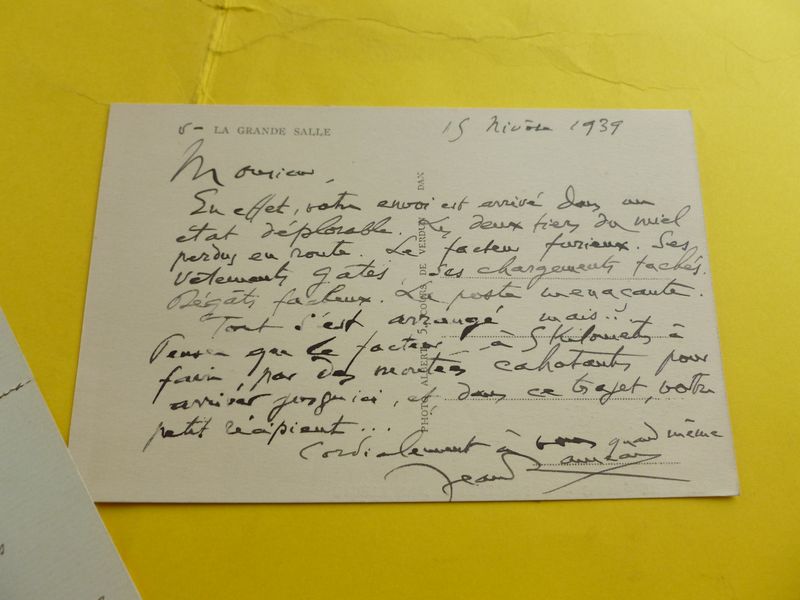 6 - LA GRANDE SALLE
15 Nivôse 1939
Monsieur,
En effet, votre envoi est arrivé dans un
état déplorable. Les deux tiers du miel
perdus en route. Le facteur furieux. Ses
vêtements gâtés, ses chargements tachés.
Dégâts facheux. La poste menaçante.
Tout s'est arrangé mais..?
Pensez que le facteur à 5 Kilomets à
faire par des montées cahotants pour
arriver jusqu'ici, et dans ce trajet, votre
petit récipient...
Cordialement à vous quand même
Jean
PHOTO ALBERT 5, COURS DE VERDUN DAX